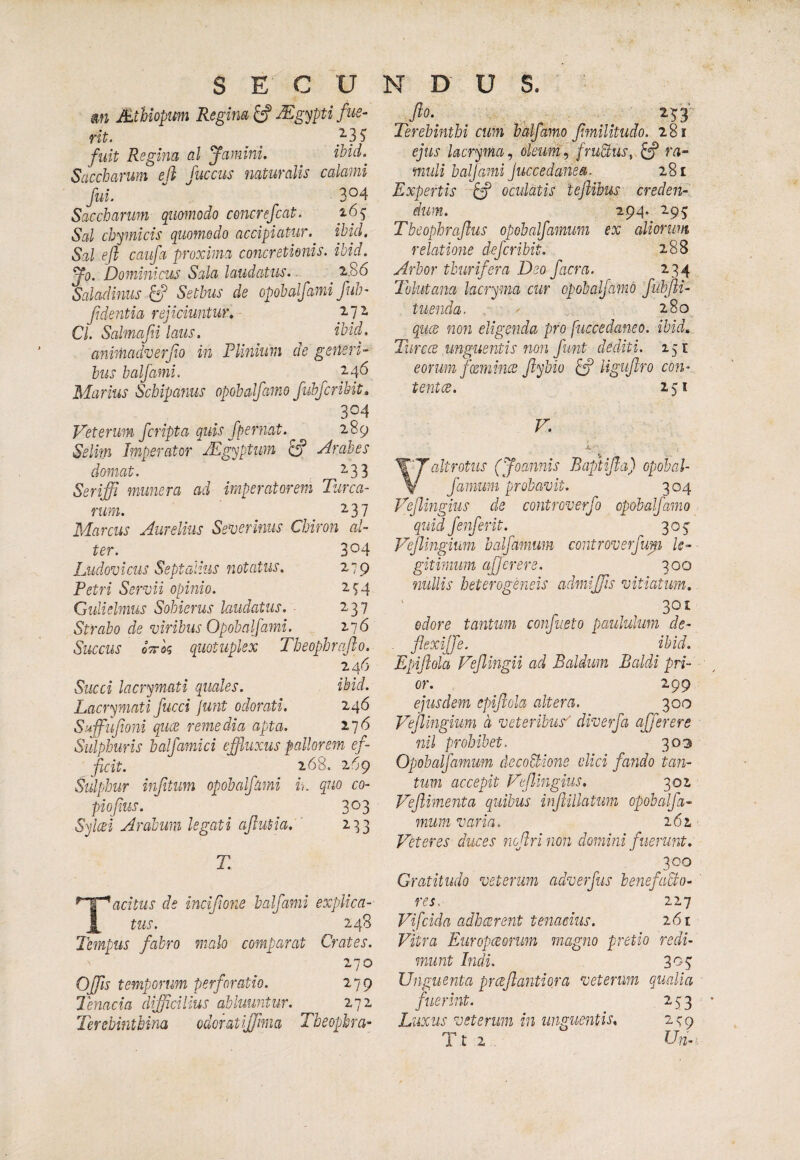 SECUNDUS.
an Æthiopum Regina & Ægypti fue-
rit. 235
fuit Regina al Jamini. ibid.
Saccharum eſt ſuccus naturalis calami
ſui. 304
Saccharum quomodo concreſcat. 265
Sal chymicis quomodo accipiatur. ibid.
Sal eſt cauſa proxima concretionis. ibid.
Jo. Dominicus Sala laudatus. 286
Saladinus & Sethus de opobalſami ſub-
ſidentia rejiciuntur. 272
Cl. Salmaſii laus. ibid.
animadverſio in Plinium de generi-
bus balſami. 246
Marius Schipanus opobalſamo ſubſcribit.
304
Veterum ſcripta quis ſpernat. 289
Selim Imperator Ægyptum & Arabes
domat. 233
Seriffi munera ad imperatorem Turca-
rum. 237
Marcus Aurelius Severinus Chiron al-
ter. 304
Ludovicus Septalius notatus. 279
Petri Servii opinio. 254
Gulielmus Sohierus laudatus. 237
Strabo de viribus Opobalſami. 276
Succus ὀπὸς quotuplex Theophraſto.
246
Succi lacrymati quales. ibid.
Lacrymati ſucci ſunt odorati. 246
Suffuſioni quæ remedia apta. 276
Sulphuris balſamici effluxus pallorem ef-
ficit. 268. 269
Sulphur inſitum opobalſami in quo co-
pioſius. 303
Sylæi Arabum legati aſtutia. 233
T.
Tacitus de inciſione balſami explica-
tus. 248
Tempus fabro malo comparat Crates.
270
Oſſis temporum perforatio. 279
Tenacia difficilius abluuntur. 272
Terebinthina odoratiſſima Theophra-
ſto. 253
Terebinthi cum balſamo ſimilitudo. 281
ejus lacryma, oleum, fructus, & ra-
muli balſami ſuccedanea. 281
Expertis & oculatis teſtibus creden-
dum. 294. 295
Theophraſtus opobalſamum ex aliorum
relatione deſcribit. 288
Arbor thurifera Deo ſacra. 234
Tolutana lacryma cur opobalſamo ſubſti-
tuenda. 280
quæ non eligenda pro ſuccedaneo. ibid.
Turcæ unguentis non ſunt dediti. 251
eorum fœminæ ſtybio & liguſtro con-
tentæ. 251
V.
Valtrotus (Joannis Baptiſta) opobal-
ſamum probavit. 304
Veſlingius de controverſo opobalſamo
quid ſenſerit. 305
Veſlingium balſamum controverſum le-
gitimum aſſerere. 300
nullis heterogeneis admiſſis vitiatum.
301
odore tantum conſueto paululum de-
flexiſſe. ibid.
Epiſtola Veſlingii ad Baldum Baldi pri-
or. 299
ejusdem epiſtola altera. 300
Veſlingium à veteribus diverſa aſſerere
nil prohibet. 303
Opobalſamum decoctione elici fando tan-
tum accepit Veſlingius. 302
Veſtimenta quibus inſtillatum opobalſa-
mum varia. 262
Veteres duces noſtri non domini fuerunt.
300
Gratitudo veterum adverſus benefacto-
res. 227
Viſcida adhærent tenacius. 261
Vitra Europæorum magno pretio redi-
munt Indi. 305
Unguenta præſtantiora veterum qualia
fuerint. 253
Luxus veterum in unguentis. 259
Tt 2 Un-